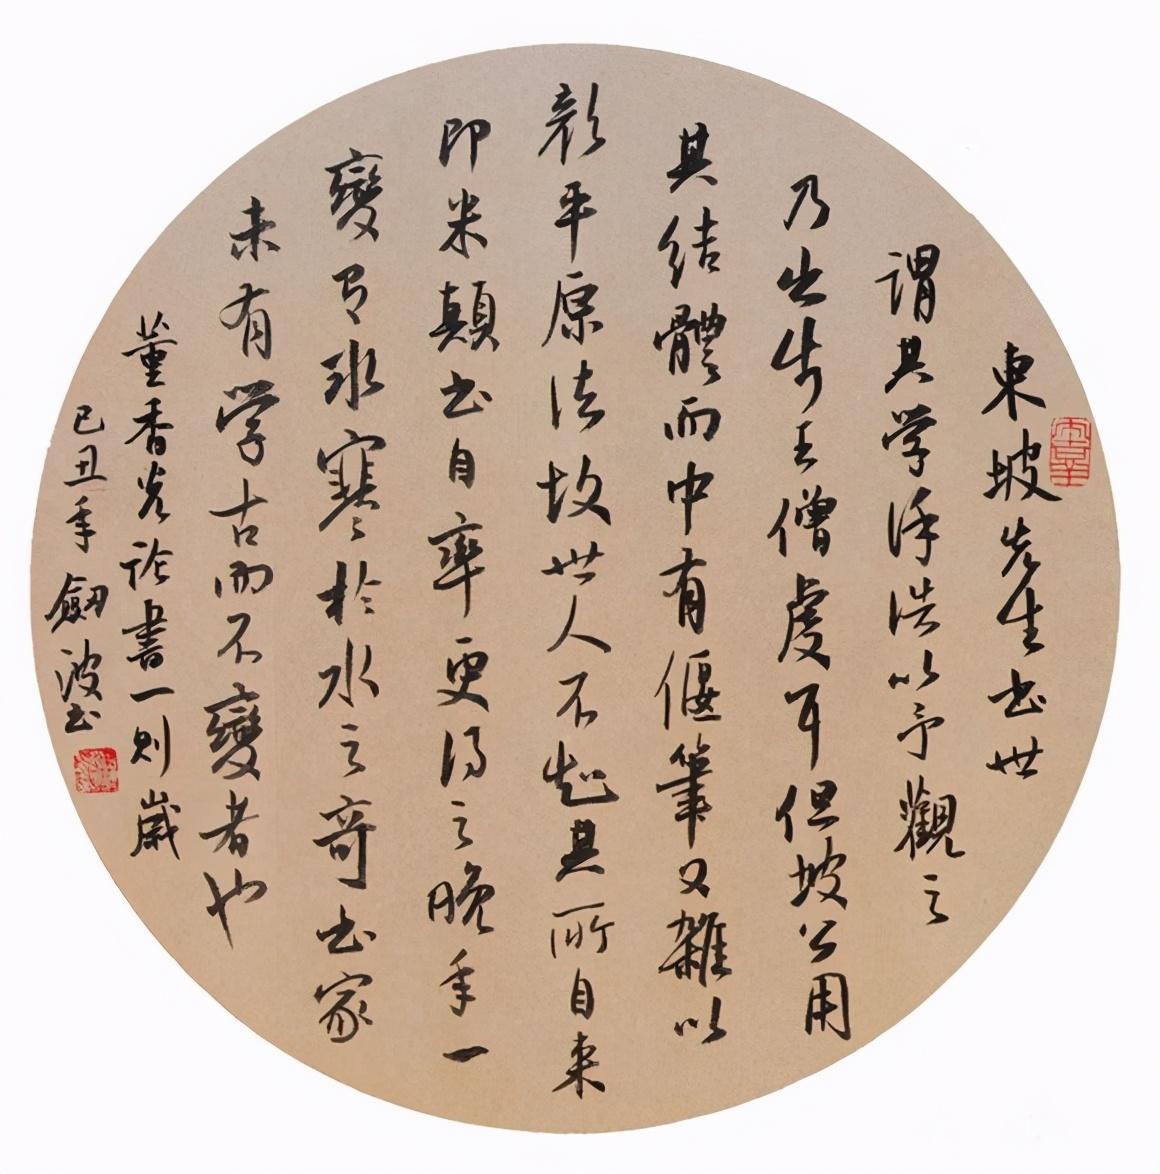 東坡先生书世
謂其学徐浩以予觀之
乃出步王僧虔耳但坡公用
其结體而中有偃筆又雜以
颜平原法故世人不知其所自来
即米顛书自率更得之晚年一
變有冰寒於水之奇书家
未有学古而不變者也
董香光论書一则歲
己丑年劔波书